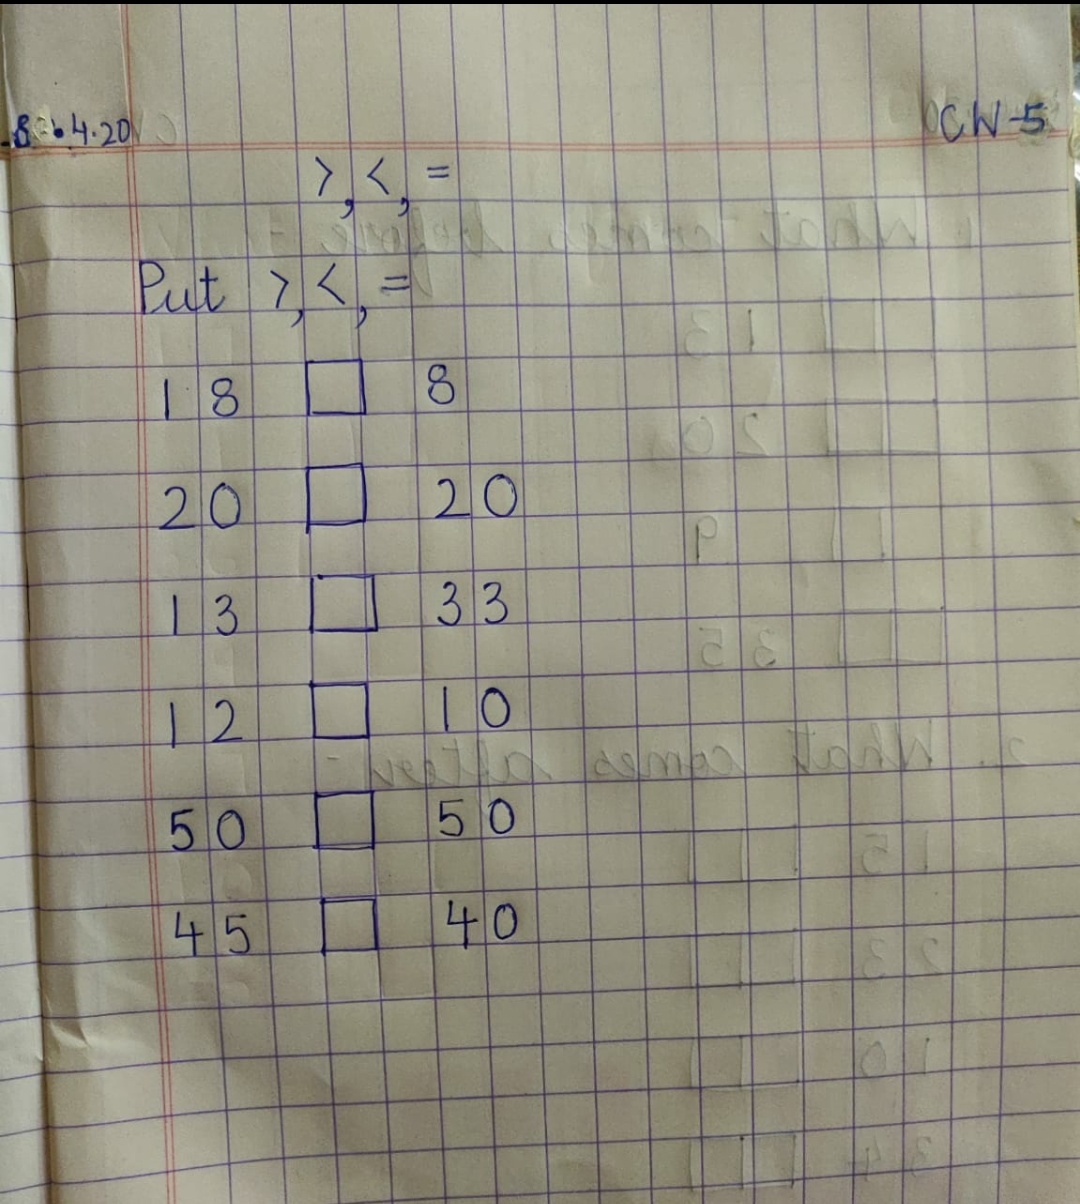 8 .4.20
CW-5
>, <, =
Put >, <, =
18 □ 8
20 □ 20
13 □ 33
12 □ 10
50 □ 50
45 □ 40